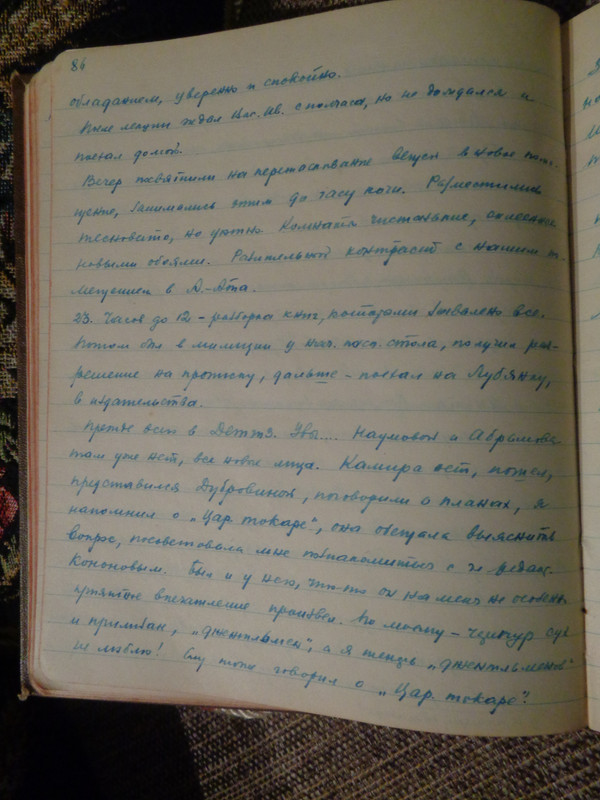 86
обладанием, уверенно и спокойно.
После лекции ждал Нас. Ив. с полчаса, но не дождался и
поехал домой.
Вечер посвятили на перетаскивание вещей в новое поме-
щение, занимались этим до часу ночи. Разместились
тесновато, но уютно. Комната чистенькие, оклеенная
новыми обоями. Разительный контраст с нашим по-
мещением в А.-Ата.
23. Часов до 12 – разборка книг, которыми завалено все.
Потом был в милиции у нач. пасп. стола, получил раз-
решение на прописку, дальше – поехал на Лубянку,
в издательства.
Прежде всего в Детгиз. Увы.... Наумовой и Абрамова
там уже нет, все новые лица. Камира есть, пошел,
представился Дубровиной, поговорили о планах, я
напомнил о „Цар. токаре", она обещала выяснить
вопрос, посоветовала мне познакомиться с гл. редакт.
Кононовым. Был и у него, что-то он на меня не особенно
приятное впечатление произвел. По моему – чересчур сух
и прилизан, „джентльмен", а я терпеть „джентльменов"
не люблю! Ему тоже говорил о „Цар. токаре".